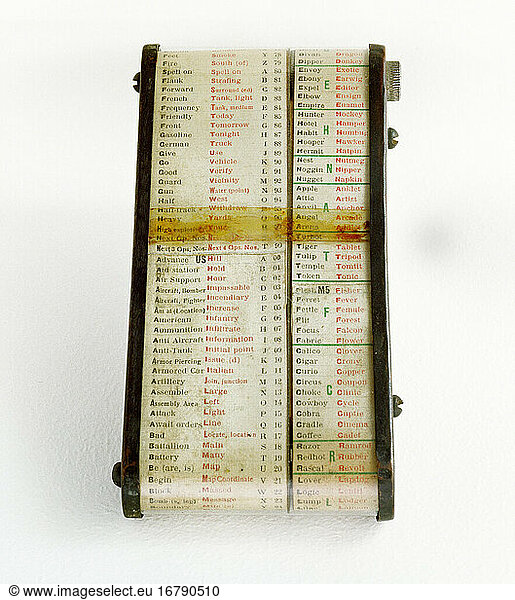 Feet Smoke Y 78
Fire South (of) Z 79
Spell on Spell on A 80
Flank Strafing B 81
Forward Surround (ed) C 82
French Tank, light D 83
Frequency Tank, medium E 84
Friendly Today F 85
Front Tomorrow G 86
Gasoline Tonight H 87
German Truck I 88
Give Use J 89
Go Vehicle K 90
Good Verify L 91
Guard Vicinity M 92
Gun Water (point) N 93
Half West O 94
Half-track Withdraw
Heavy Yards
High explosive Your
Next Ops, Nos.
Next 3 Ops, Nos. Next 4 Ops, Nos. T
Advance US Hill A 00
Aid station Hold B 01
Air Support Hour C 02
Aircraft, Bomber Impassable D 03
Aircraft, Fighter Incendiary E 04
Aerial (Location) Increase F 05
American Infantry G 06
Ammunition Infiltrate H 07
Anti Aircraft Information I 08
Anti-Tank Initial point J 09
Armor Piercing Issue (d) K 10
Armored Car Italian L 11
Artillery Join, junction M 12
Assemble Large N 13
Assembly Area Left O 14
Attack Light P 15
Await orders Line Q 16
Bad Locate, location R 17
Battalion Main S 18
Battery Many T 19
Be (are, is) Map U 20
Begin Map Coordinate V 21
Block Massed W 22
Message 23
Divan Dragon
Dipper Donkey
Envoy Exotic
Ebony Earwig
Expel E Editor
Elbow Ensign
Empire Enamel
Hunter Hockey
Hotel Hamper
Habit H Humbug
Hooper Hawker
Hermit Hatpin
Nest Nutmeg
Noggin N Nipper
Nugget Napkin
Apple Anklet
Attic Artist
Anvil A Anchor
Angel Arcade
Arena Apple
Turbot
Tiger Tablet
Tulip T Tripod
Temple Tomtit
Token Tonic
M5 Fisher
Ferret Fever
Fettle F Female
Flit Forest
Focus Falcon
Fabric Flower
Calico Clover
Cigar Crony
Curio Copper
Circus Coupon
Choke C Clinic
Cowboy Cycle
Cobra Cutlet
Cradle Cinema
Coffee Cadet
Razor Ramrod
Redhot R Rubber
Rascal Revolt
Lover Lapdog
Logic Lentil
Lump L Lodger
alamy
Image ID: 16790510